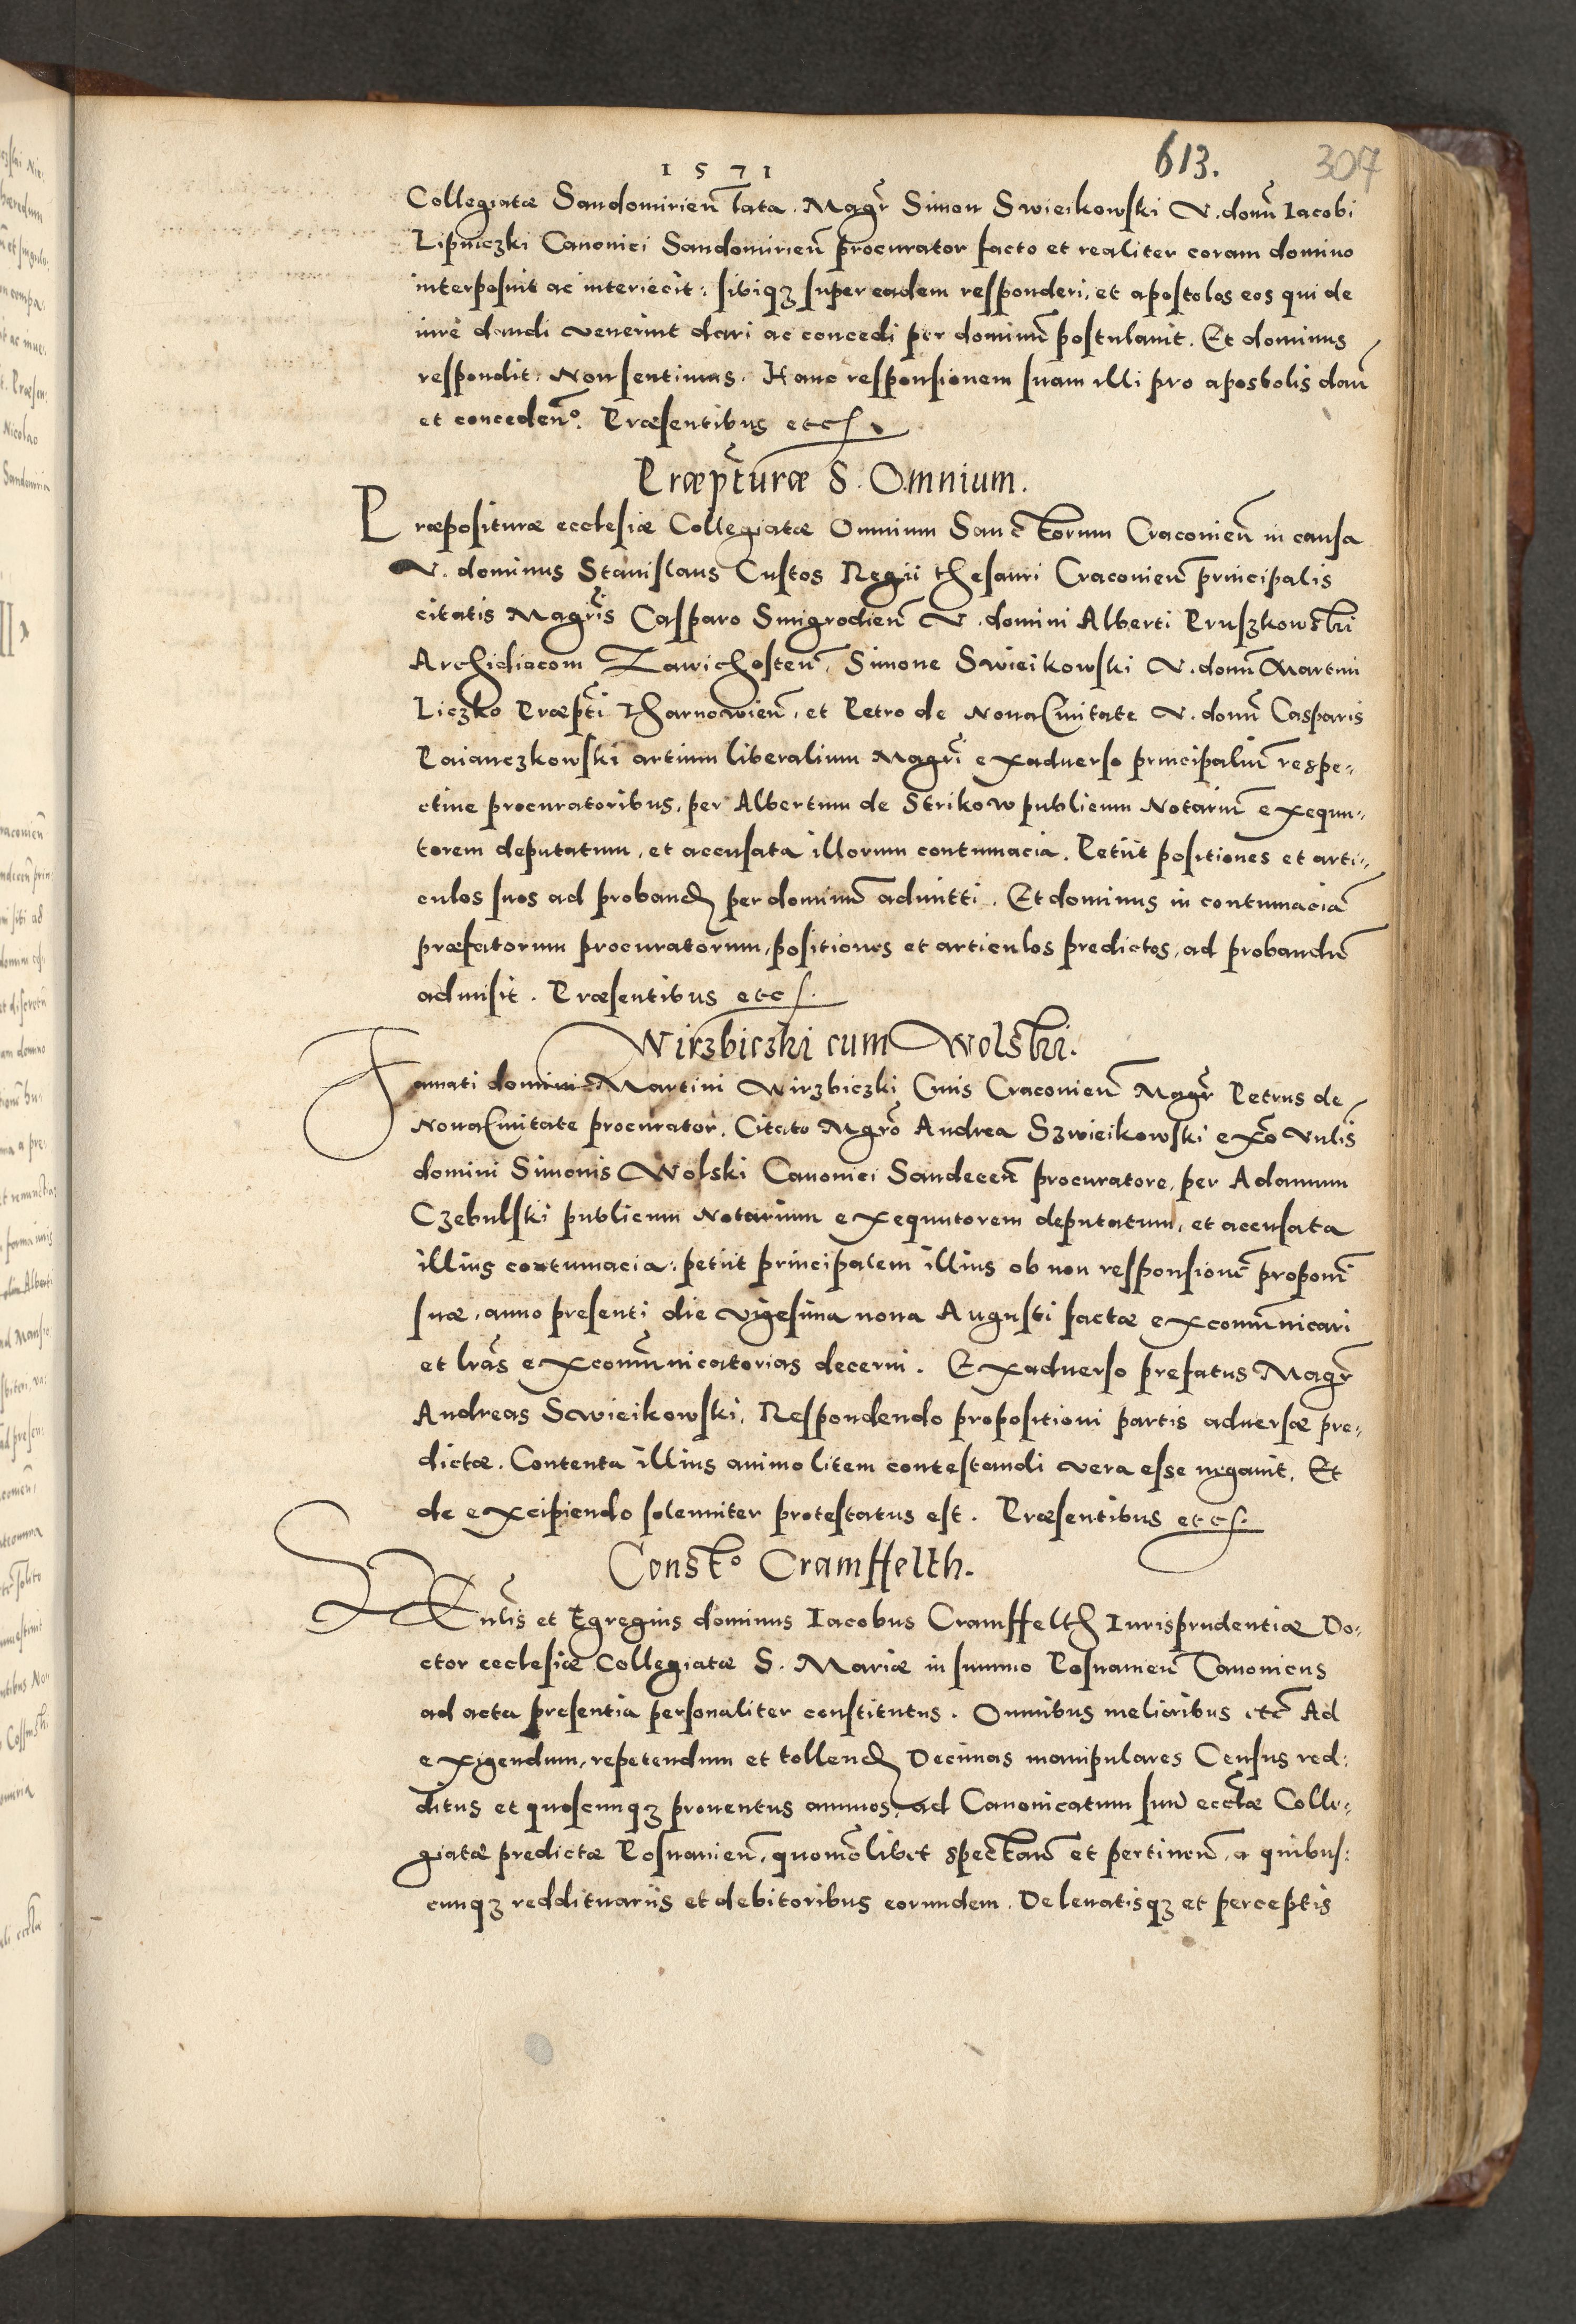 1571
613.
307
Collegiatæ Sandomirien̄ lata. Magr̃ Simon Swieikowski V. domñ Iacobi
Lipniczki Canonici Sandomirien̄ procurator facto et realiter coram domino
interposuit ac interiecit: sibiqꝫ super eadem responderi, et apostolos eos qui de
iure dandi venerint dari ac concedi per dominū postulauit. Et dominus
respondit. Non sentimus. Hanc responsionem suam illi pro apostolis dan̄
et conceden̄º. Præsentibus etc.
Præpt̃uræ S. Omnium.
Præposituræ ecclesiæ Collegiatæ Omnium Sanctorum Cracouien̄ in causa
V. dominus Stanislaus Custos Regii thesauri Cracouien̄ principalis
citatis Magr̃is Casparo Smigrodien̄ V. domini Alberti Pruszkowski
Archidiaconi Zawichosten̄, Simone Swieikowski V. domñ Martini
Liczko Præpt̃i Tharnowien̄, et Petro de NouaCiuitate V. domñ Casparis
Paianczkowski artium liberalium Magr̃i exaduerso principaliū respe-
ctiue procuratoribus, per Albertum de Strikow publicum Notariū exequu-
torem deputatum, et accusata illorum contumacia. Petiit positiones et arti-
culos suos ad proband per dominū admitti. Et dominus in contumaciā
præfatorum procuratorum, positiones et articulos predictos, ad probandū
admisit. Præsentibus etc.
Wirzbiczki cum Wolski.
Famati domini Martini Wirzbiczki Ciuis Cracouien̄ Magr̃ Petrus de
NouaCiuitate procurator. Citato Mgrõ Andrea Szwieikowski exõ Vnlis̃
domini Simonis Wolski Canonici Sandecen̄ procuratore, per Adamum
Czebulski publicum Notarium exequutorem deputatum, et accusata
illius cotumacia: petiit principalem illius ob non responsionē proponī
suæ, anno presenti die vigesima nona Augusti factæ excom̃unicari
et lrãs excom̃unicatorias decerni. Exaduerso prefatus Magr̃
Andreas Swieikowski, Respondendo propositioni partis aduersæ pre-
dictæ. Contenta illius animo litem contestandi vera esse negauit. Et
de excipiendo solenniter protestatus est. Præsentibus etc.
Constº Cramffelth.
VEnlis̃ et Egregius dominus Iacobus Cramffelth Iurisprudentiæ Do-
ctor ecclesiæ Collegiatæ S. Mariæ in summo Posnanien̄ Canonicus
ad acta presentia personaliter constitutus. Omnibus melioribus etc̄ Ad
exigendum, repetendum et tollend Decimas manipulares Census red-
ditus et quoscunqꝫ prouentus annuos, ad Canonicatum suū ecclæ̃ Colle-
giatæ predictæ Posnanien̄, quomõlibet spectan̄ et pertinen̄, a quibus-
cunqꝫreddituariis et debitoribus eorundem. De leuatisqꝫ et perceptis